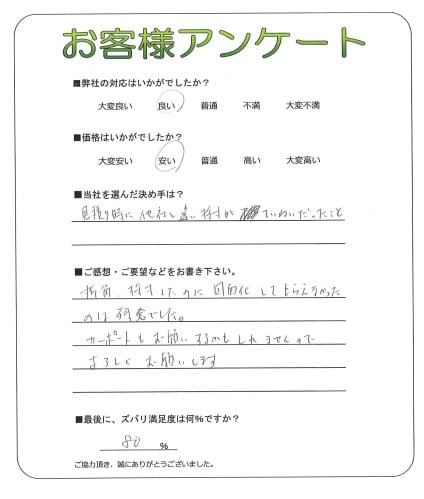 お客様アンケート
■弊社の対応はいかがでしたか？
大変良い 良い 普通 不満 大変不満
■価格はいかがでしたか？
大変安い 安い 普通 高い 大変高い
■当社を選んだ決め手は？
見積り時に他社と違い採寸がていねいだったこと
■ご感想・ご要望などをお書き下さい。
折角、採寸したのに図面化してもらえなかった
のは残念でした。
カーポートもお願いするかもしれませんので
よろしくお願いします
■最後に、ズバリ満足度は何%ですか？
80 %
ご協力頂き、誠にありがとうございました。